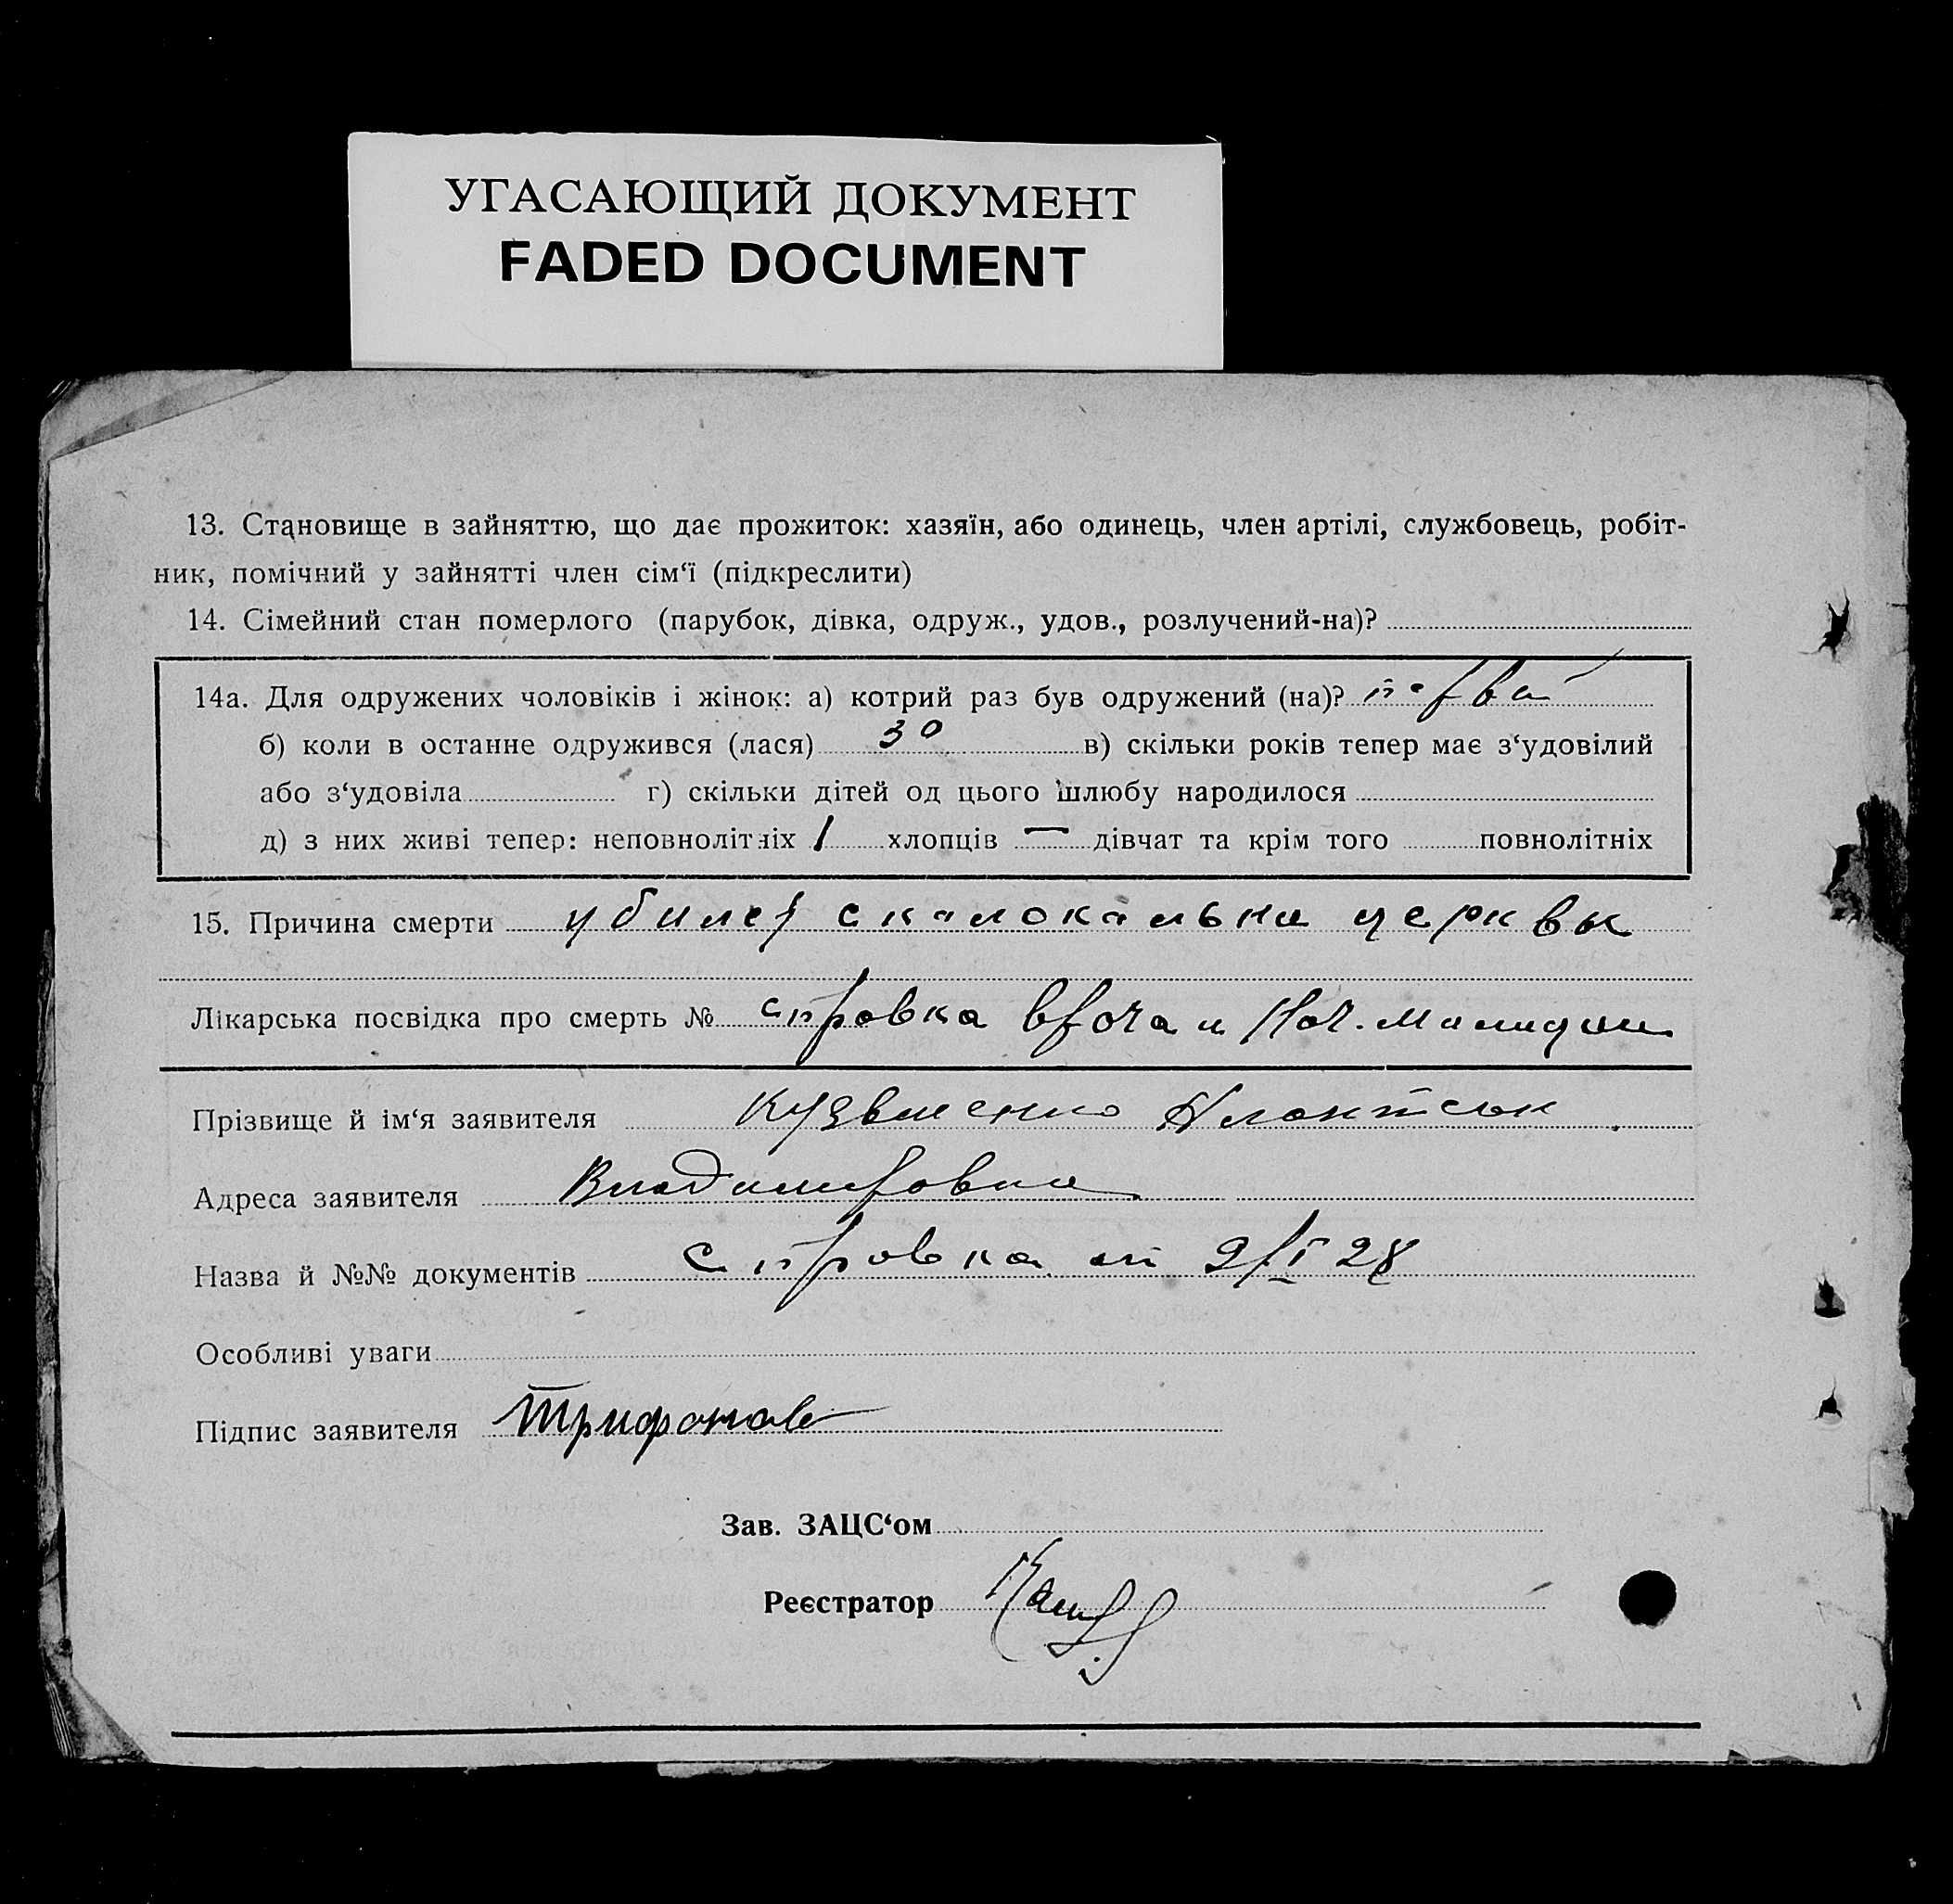 УГАСАЮЩИЙ ДОКУМЕНТ
FADED DOCUMENT
13. Становище в зайняттю, що дає прожиток: хазяїн, або одинець, член артілі, службовець, робіт-
ник, помічний у зайнятті член сім‘ї (підкреслити)
14. Сімейний стан померлого (парубок, дівка, одруж., удов., розлучений-на)?
14а. Для одружених чоловіків і жінок: а) котрий раз був одружений (на)? первый
б) коли в останне одружився (лася) 30 в) скільки років тепер має з‘удовілий
або з‘удовіла г) скільки дітей од цього шлюбу народилося
д) з них живі тепер: неповнолітніх 1 хлопців — дівчат та крім того повнолітніх
15. Причина смерти убилсь церквы
Лікарська посвідка про смерть № справка врача и Нач. Милиции
Прізвище й ім‘я заявителя Кузьменко
Адреса заявителя Владимировна
Назва й №№ документів справка от 9/I 28
Особливі уваги
Підпис заявителя Трифонов
Зав. ЗАЦС‘ом
Реєстратор